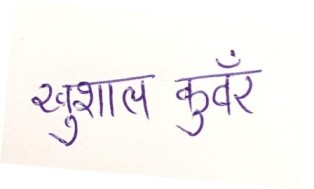 खुशाल कुवँर